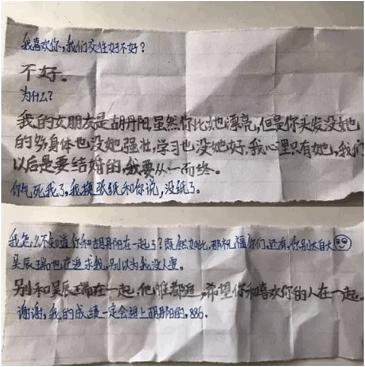 我喜欢你,我们交往好不好?
不好。
为什么?
我的女朋友是胡丹阳,虽然你比她漂亮,但是你头发没她
的多,身体也没她强壮,学习也没她好,我心里只有她,我们
以后是要结婚的,我要从一而终。
你气死我了,我换张纸和你说,没纸了。
我怎么不知道你和胡丹阳在一起了?既然如此,那祝福你们,还有,你别太自大
吴辰瑞也在追求我,别以为我没人要。
别和吴辰瑞在一起,他谁都追,希望你和喜欢你的人在一起。
谢谢,我的成绩一定会超上胡丹阳的,886.